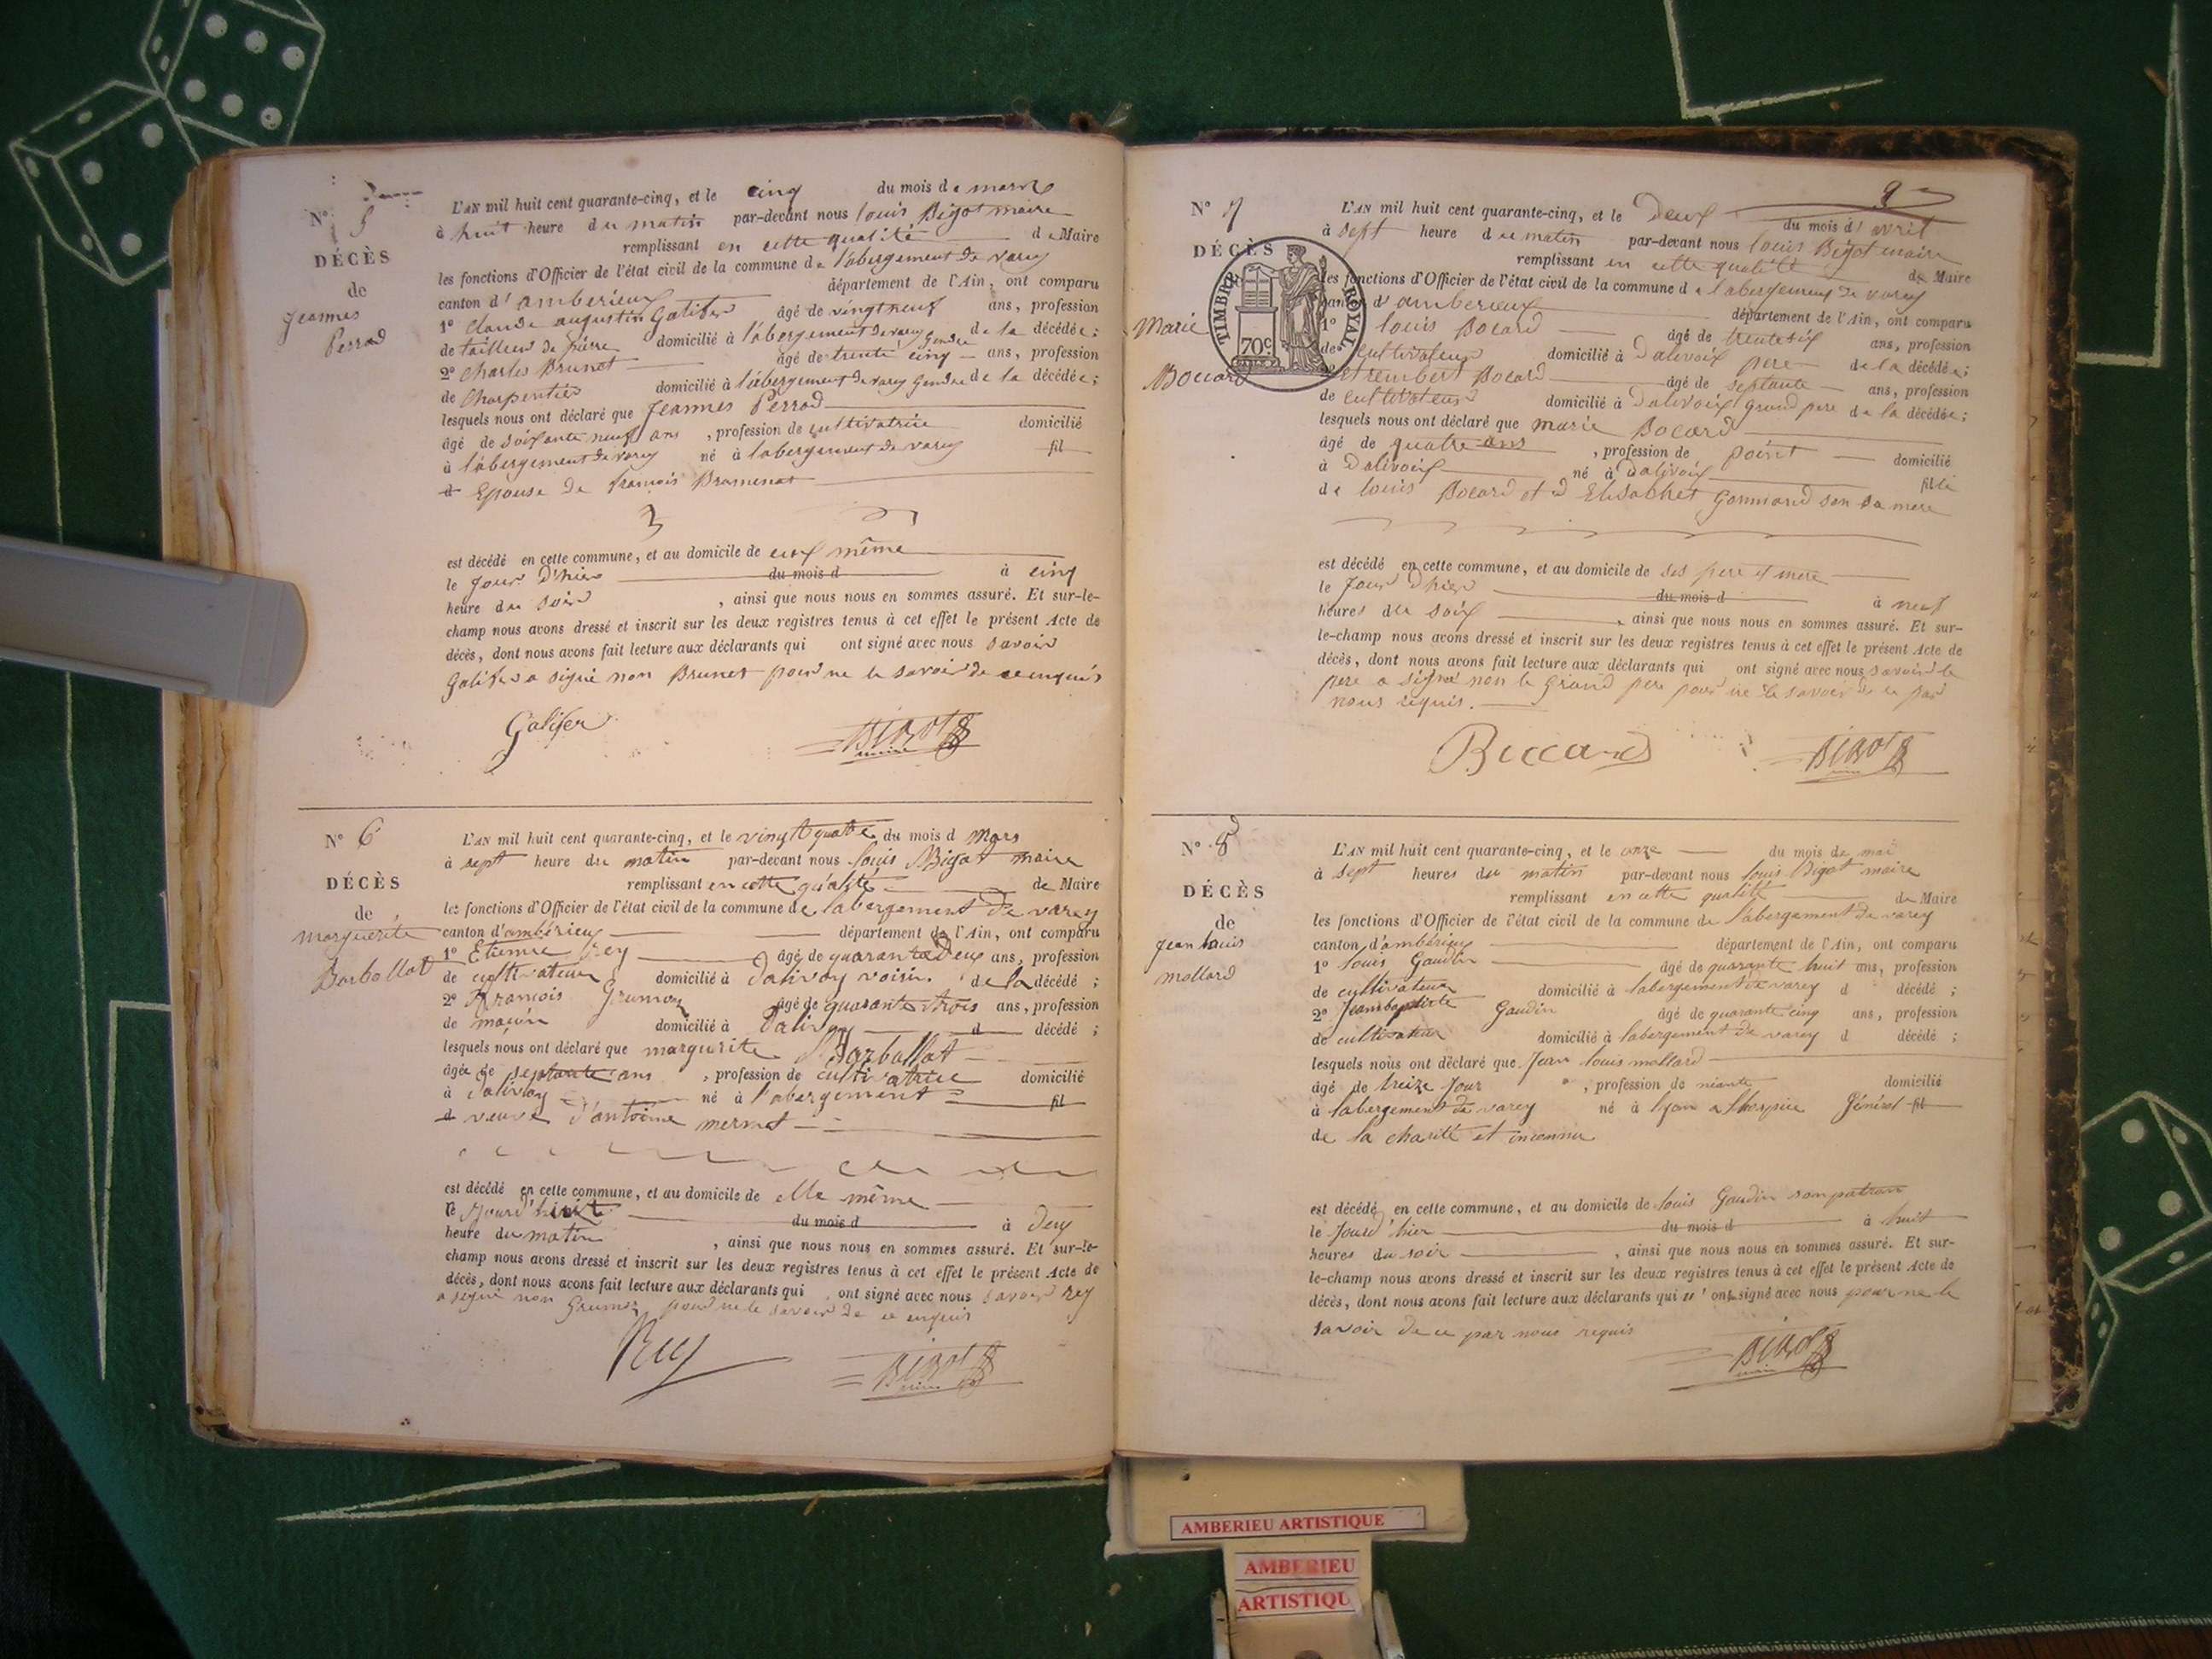 N° 5
DÉCÈS
de
jeannes
Perrad
L'AN mil huit cent quarante-cinq, et le cinq du mois de mars
à huit heure du matin par-devant nous louis Bigot maire
remplissant en cette qualité de Maire
les fonctions d'Officier de l'état civil de la commune de l'abergement de varey
canton d'amberieux département de l'Ain, ont comparu
1° claude augustin Galifer âgé de vingt neuf ans, profession
de tailleur de pierre domicilié à l'abergement de varey gendre de la décédée;
2° charles Brunet âgé de trente cinq ans, profession
de charpentier domicilié à l'abergement de varey gendre de la décédée;
lesquels nous ont déclaré que jeannes Perrod
âgé de soixante neuf ans, profession de cultivatrice domicilié
à l'abergement de varey né à l'abergement de varey fil
d Epouse de francois
est décédé en cette commune, et au domicile de eux même
le jour d'hier du mois d à cinq
heure du soir, ainsi que nous nous en sommes assuré. Et sur-le-
champ nous avons dressé et inscrit sur les deux registres tenus à cet effet le présent Acte de
décès, dont nous avons fait lecture aux déclarants qui ont signé avec nous savoir
galifer a signé non Brunet pour ne le savoir de ce enquis
Galifer
BIGOT
N° 6
DÉCÈS
de
marguerite
Barbollat
L'AN mil huit cent quarante-cinq, et le vingt quatre du mois d Mars
à sept heure du matin par-devant nous louis Bigot maire
remplissant en cette qualité de Maire
les fonctions d'Officier de l'état civil de la commune de l'abergement de varey
canton d'ambérieux département de l'Ain, ont comparu
1° Etienne Rey âgé de quarante deux ans, profession
de cultivateur domicilié à dalivoy voisin de la décédé;
2° francois âgé de quarante trois ans, profession
de maçon domicilié à dalivoy d décédé;
lesquels nous ont déclaré que marguerite Barbollat
âgée de septante ans, profession de cultivatrice domicilié
à dalivoy né à l'abergement fil
d veuve d'antoine mermet
est décédé en cette commune, et au domicile de elle même
le du mois d à deux
heure du matin, ainsi que nous nous en sommes assuré. Et sur-le-
champ nous avons dressé et inscrit sur les deux registres tenus à cet effet le présent Acte de
décès, dont nous avons fait lecture aux déclarants qui ont signé avec nous savoir rey
a signé non pour ne le savoir de ce enquis
Rey
BIGOT
9
N° 7
DÉCÈS
de
Marie
Bocard
TIMBRE ROYAL
70c
L'AN mil huit cent quarante-cinq, et le Deux du mois d'avril
à sept heure du matin par-devant nous louis Bigot maire
remplissant en cette qualité de Maire
les fonctions d'Officier de l'état civil de la commune de l'abergement de varey
canton d'amberieux département de l'Ain, ont comparu
1° louis Bocard âgé de trente six ans, profession
de cultivateur domicilié à Dalivoix pere de la décédée;
2° Bocard âgé de septante ans, profession
de cultivateur domicilié à Dalivoix grand pere de la décédée;
lesquels nous ont déclaré que marie Bocard
âgé de quatre ans, profession de point domicilié
à Dalivoix né à Dalivoix fille
de louis Bocard et d Elisabhet son sa mere
est décédé en cette commune, et au domicile de ses pere et mere
le jour d'hier du mois d à neuf
heures du soir, ainsi que nous nous en sommes assuré. Et sur-
le-champ nous avons dressé et inscrit sur les deux registres tenus à cet effet le présent Acte de
décès, dont nous avons fait lecture aux déclarants qui ont signé avec nous savoir le
pere a signé non le grand pere pour ne le savoir de ce par
nous requis.
Boccard
BIGOT
N° 8
DÉCÈS
de
jean louis
mollard
L'AN mil huit cent quarante-cinq, et le onze du mois de mai
à sept heures du matin par-devant nous louis Bigot maire
remplissant en cette qualité de Maire
les fonctions d'Officier de l'état civil de la commune de l'abergement de varey
canton d'ambérieux département de l'Ain, ont comparu
1° louis Gaudin âgé de quarante huit ans, profession
de cultivateur domicilié à l'abergement de varey d décédé;
2° jeanbaptiste Gaudin âgé de quarante cinq ans, profession
de cultivateur domicilié à l'abergement de varey d décédé;
lesquels nous ont déclaré que Jean louis mollard
âgé de treize jour, profession de niante domicilié
à l'abergement de varey né à lyon a lhospice général fil
de la charité et inconnu
est décédé en cette commune, et au domicile de louis Gaudin son patron
le jourd'hier du mois d à huit
heures du soir, ainsi que nous nous en sommes assuré. Et sur-
le-champ nous avons dressé et inscrit sur les deux registres tenus à cet effet le présent Acte de
décès, dont nous avons fait lecture aux déclarants qui n'ont signé avec nous pour ne le
savoir de ce par nous requis
BIGOT
AMBERIEU ARTISTIQUE
AMBERIEU
ARTISTIQU